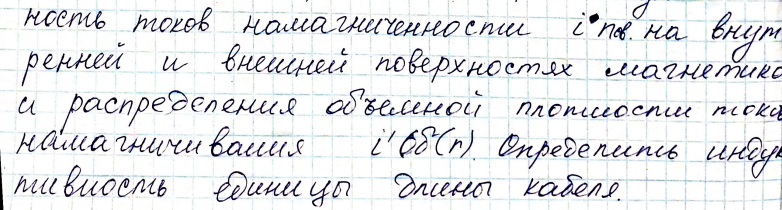 ность токов намагниченности i'пов. на внут
ренней и внешней поверхностях магнетика
и распределения объемной плотности тока
намагничивания i'об(r). Определить индук
тивность единицы длины кабеля.